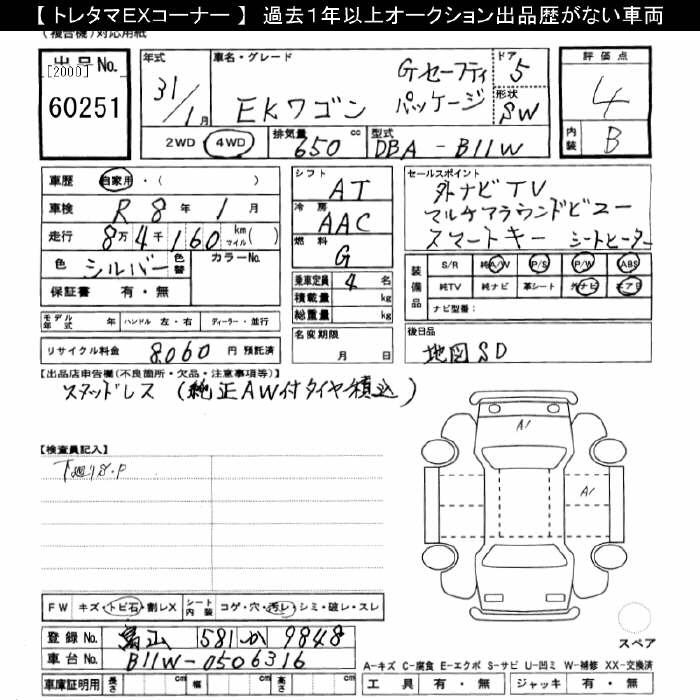 【 トレタマEXコーナー 】 過去1年以上オークション出品歴がない車両
(複合機)対応用紙
出品No.
[2000]
60251
年式
31/1月
車名・グレード
EKワゴン
Gセーフティ
パッケージ
ドア
5
形状
SW
2WD 4WD
排気量 650 cc
型式 DBA-B11W
評価点
4
内装 B
車歴 自家用・( )
車検 R 8年 1月
走行 8万4千160 km マイル( )
色 シルバー 色替 カラーNo.
保証書 有・無
シフト AT
冷房 AAC
燃料 G
乗車定員 4 名
積載量 kg
総重量 kg
名変期限
月 日
セールスポイント
外ナビTV
マルチアラウンドビュー
スマートキー シートヒーター
装備品
S/R 純A/W P/S P/W ABS
純TV 純ナビ 革シート 外ナビ エアB
ナビ型番:
モデル年式 年 ハンドル 左・右 ディーラー・並行
リサイクル料金 8060 円 預託済
後日品
地図SD
【出品店申告欄(不良箇所・欠品・注意事項等)】
スタッドレス (純正AW付タイヤ積込)
【検査員記入】
下廻りS.P
A1
A1
FW キズ・トビ石・割レX シート内装 コゲ・穴・汚レ・シミ・破レ・スレ
登録No. 富山 581 か 9848
車台No. B11W-0506316
車庫証明用 長さ cm 幅 cm 高さ cm
スペア
A-キズ C-腐食 E-エクボ S-サビ U-凹ミ W-補修 XX-交換済
工具 有・無 ジャッキ 有・無